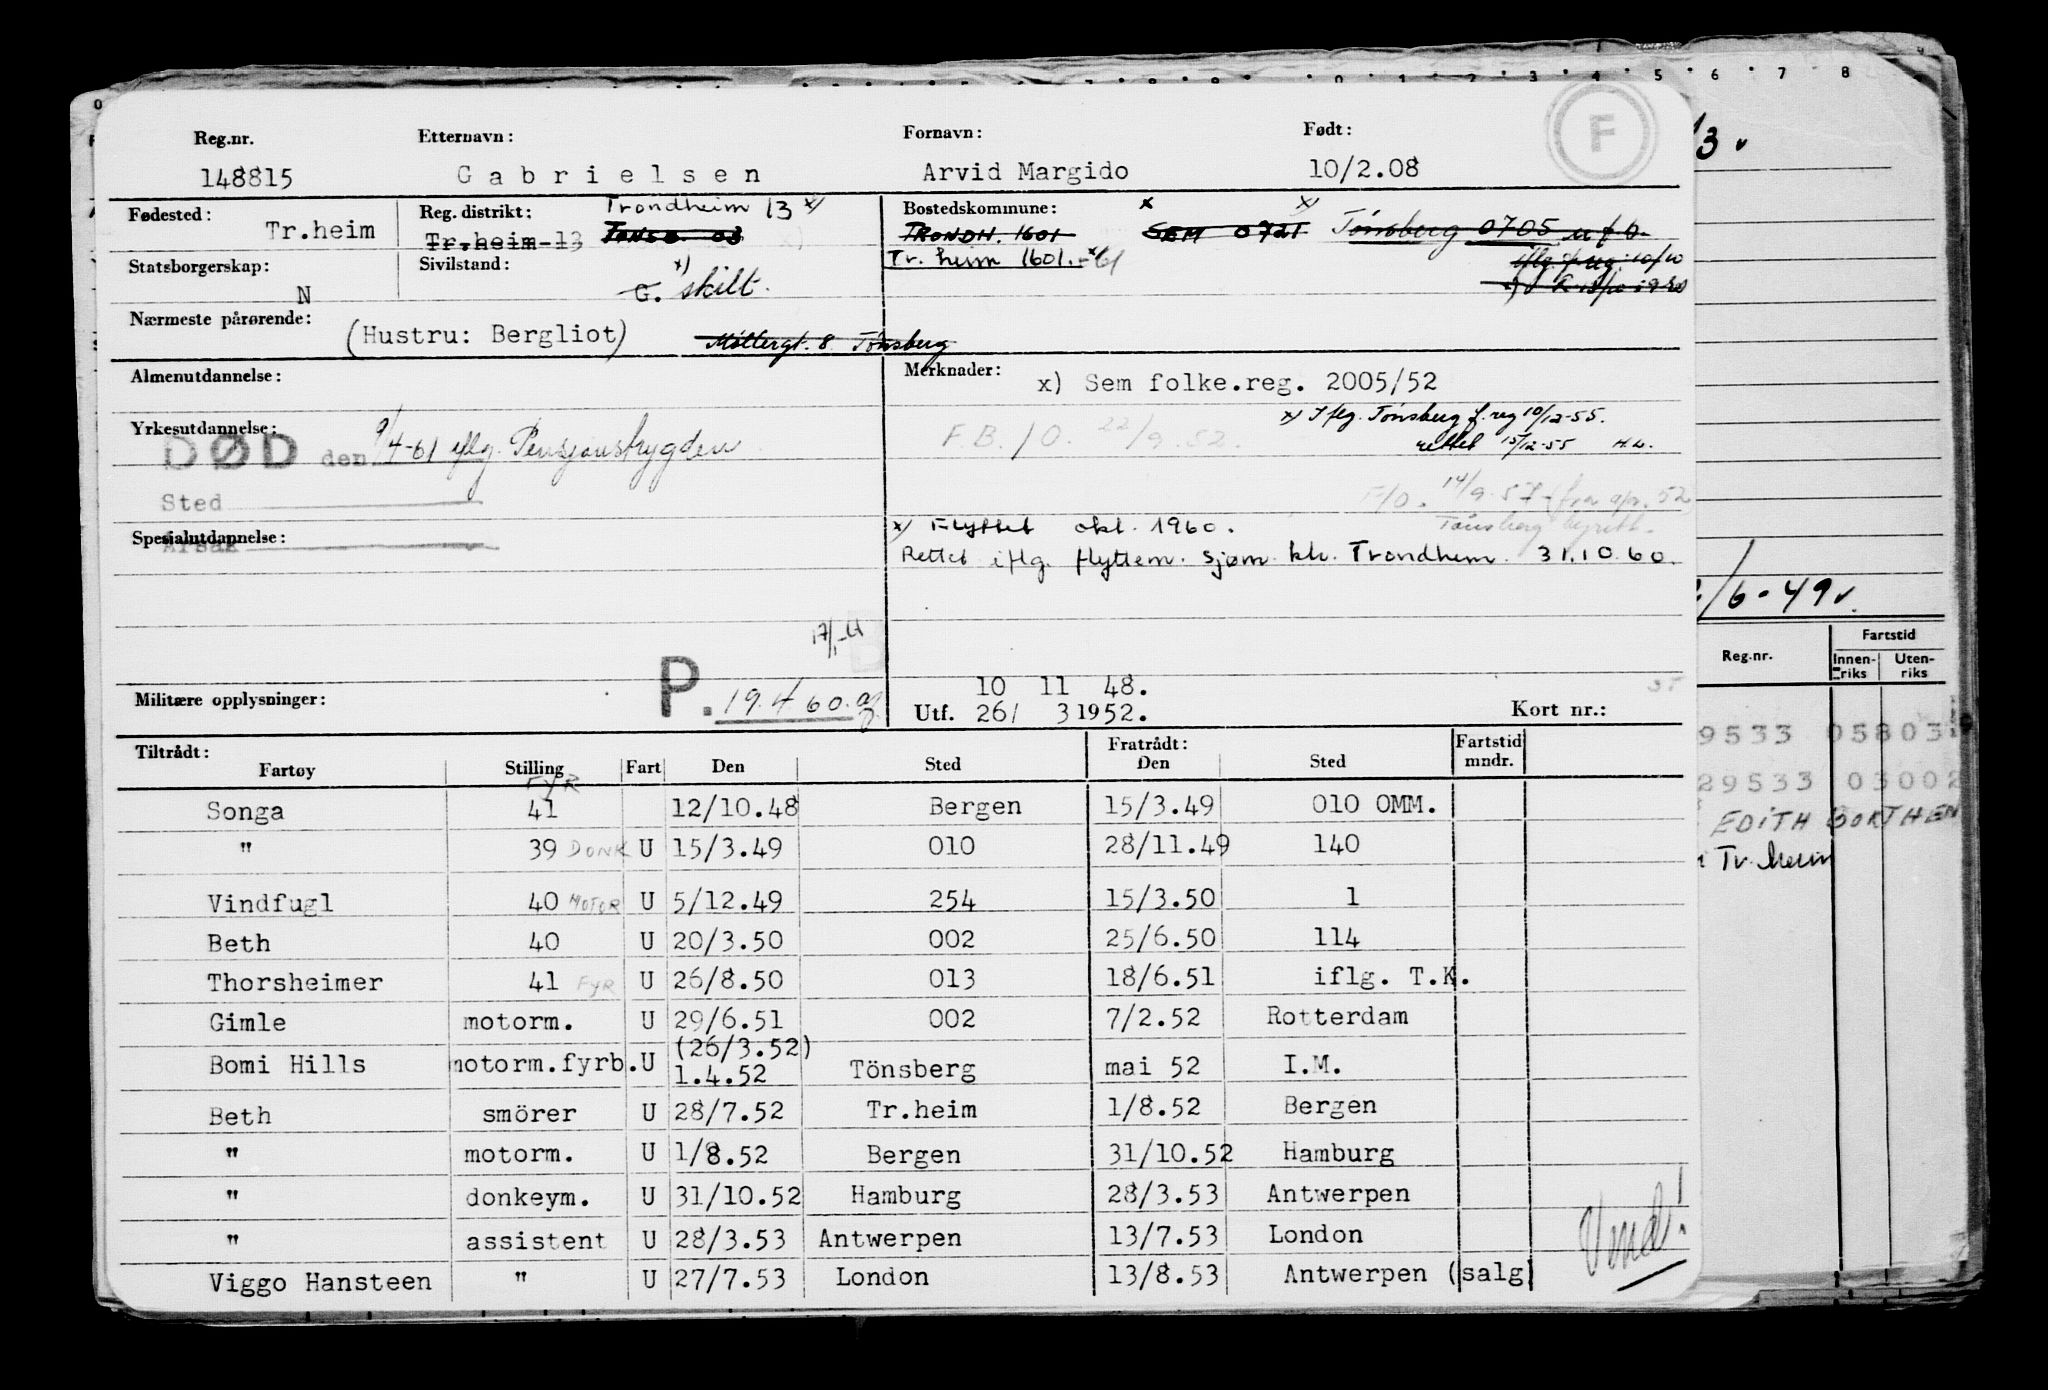 Reg.nr. Etternavn: Fornavn: Født: F
148815 Gabrielsen Arvid Margido 10/2.08
Fødested: Tr.heim Reg. distrikt: Trondheim 13 x) Tr.heim 13 TØNSB. 03 Bostedskommune: x x) TRONDH. 1601 SEM 0721 Tönsberg 0705
Tr. heim 1601.
Statsborgerskap: N Sivilstand: x) G. skilt.
Nærmeste pårørende: (Hustru: Bergliot) Møllergt. 8 Tønsberg
Almenutdannelse: Merknader: x) Sem folke.reg. 2005/52
Yrkesutdannelse: x) Iflg. Tönsberg f.reg 10/12-55.
DØD den 9/4-61 iflg. Pensjonstrygden F.B./O. 22/9.52. rettet 15/12-55 H.W.
Sted F/O. 14/9.57 (fra apr. 52
Spesialutdannelse: x) Flyttet okt. 1960. Tönsberg
Årsak Rettet iflg. flyttem. sjøm. ktr. Trondhem. 31.10.60.
Militære opplysninger: P. 19.4 60. 10 11 48.
Utf. 26/ 3 1952. Kort nr.:
Tiltrådt: Fratrådt: Fartstid mndr.
Fartøy Stilling Fart Den Sted Den Sted
Songa FYR 41 12/10.48 Bergen 15/3.49 010 OMM.
" 39 DONK U 15/3.49 010 28/11.49 140
Vindfugl 40 MOTOR U 5/12.49 254 15/3.50 1
Beth 40 U 20/3.50 002 25/6.50 114
Thorsheimer 41 FYR U 26/8.50 013 18/6.51 iflg. T.K.
Gimle motorm. U 29/6.51 002 7/2.52 Rotterdam
Bomi Hills motorm.fyrb. U (26/3.52) 1.4.52 Tönsberg mai 52 I.M.
Beth smörer U 28/7.52 Tr.heim 1/8.52 Bergen
" motorm. U 1/8.52 Bergen 31/10.52 Hamburg
" donkeym. U 31/10.52 Hamburg 28/3.53 Antwerpen
" assistent U 28/3.53 Antwerpen 13/7.53 London
Viggo Hansteen " U 27/7.53 London 13/8.53 Antwerpen (salg)
Vend!
/3.
/6-49
Reg.nr. Fartstid
Innen-riks Uten-riks
9533 05803
29533 03002
EDITH BORTHEN
Tr. heim